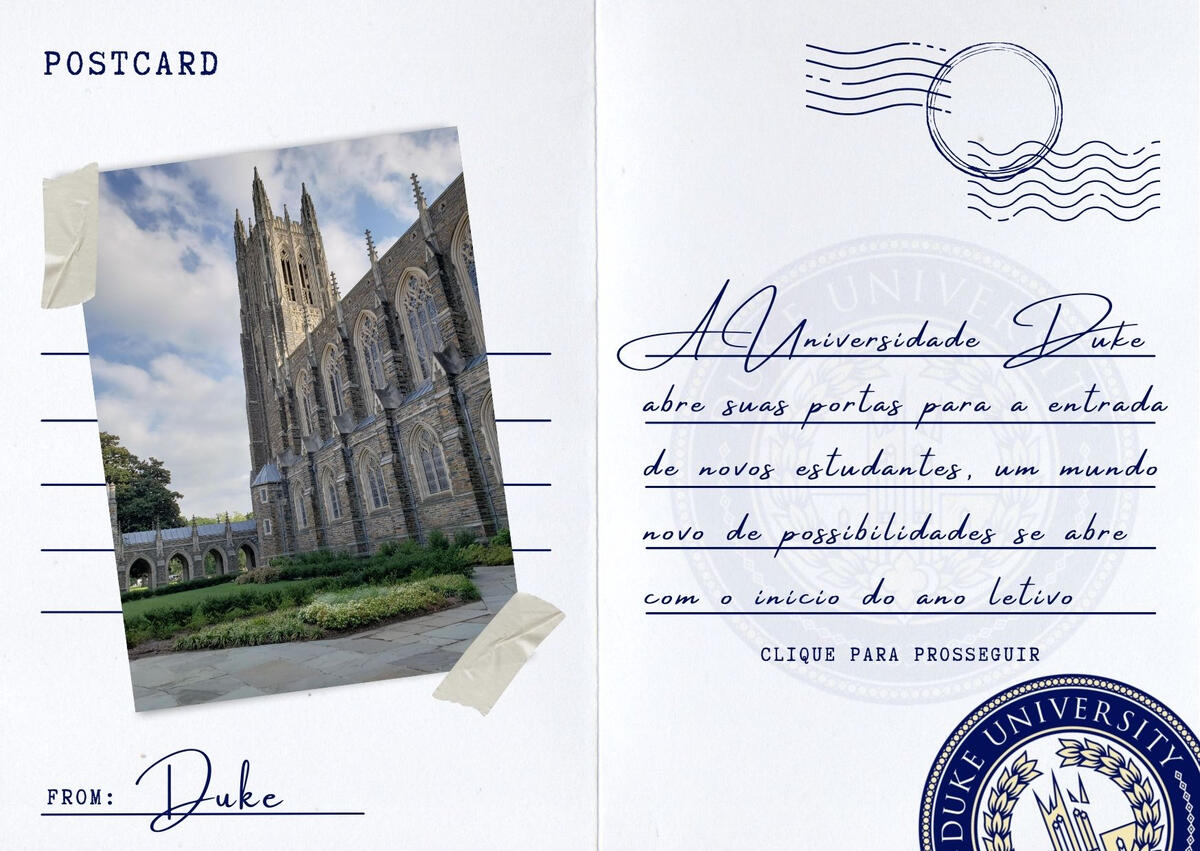 POSTCARD
FROM: Duke
A Universidade Duke
abre suas portas para a entrada
de novos estudantes, um mundo
novo de possibilidades se abre
com o inicio do ano letivo
CLIQUE PARA PROSSEGUIR
DUKE UNIVERSITY
DUKE UNIVERSITY